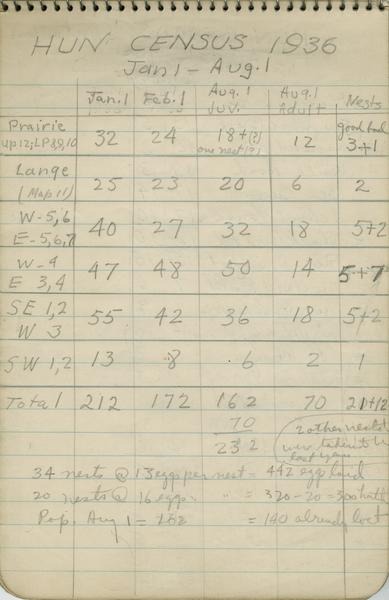 HUN CENSUS 1936
Jan 1 - Aug. 1
Jan. 1 Feb. 1 Aug. 1 Juv. Aug. 1 Adult Nests
Prairie 32 24 18+(?) 12 good bad
Up 12; LP 8,9,10 one nest (?) 3+1
Lange 25 23 20 6 2
(Map 11)
W-5,6 40 27 32 18 5+2
E-5,6,7
W-4 47 48 50 14 5+7
E 3,4
SE 1,2 55 42 36 18 5+2
W 3
SW 1,2 13 8 6 2 1
Total 212 172 162 70 21+12
70 2 other nests
232 were taken
last year
34 nests @ 13 eggs per nest = 442 egg laid
20 nests @ 16 eggs " " = 320-20 = 300 hatch
Pop. Aug 1 = 162 = 140 already lost